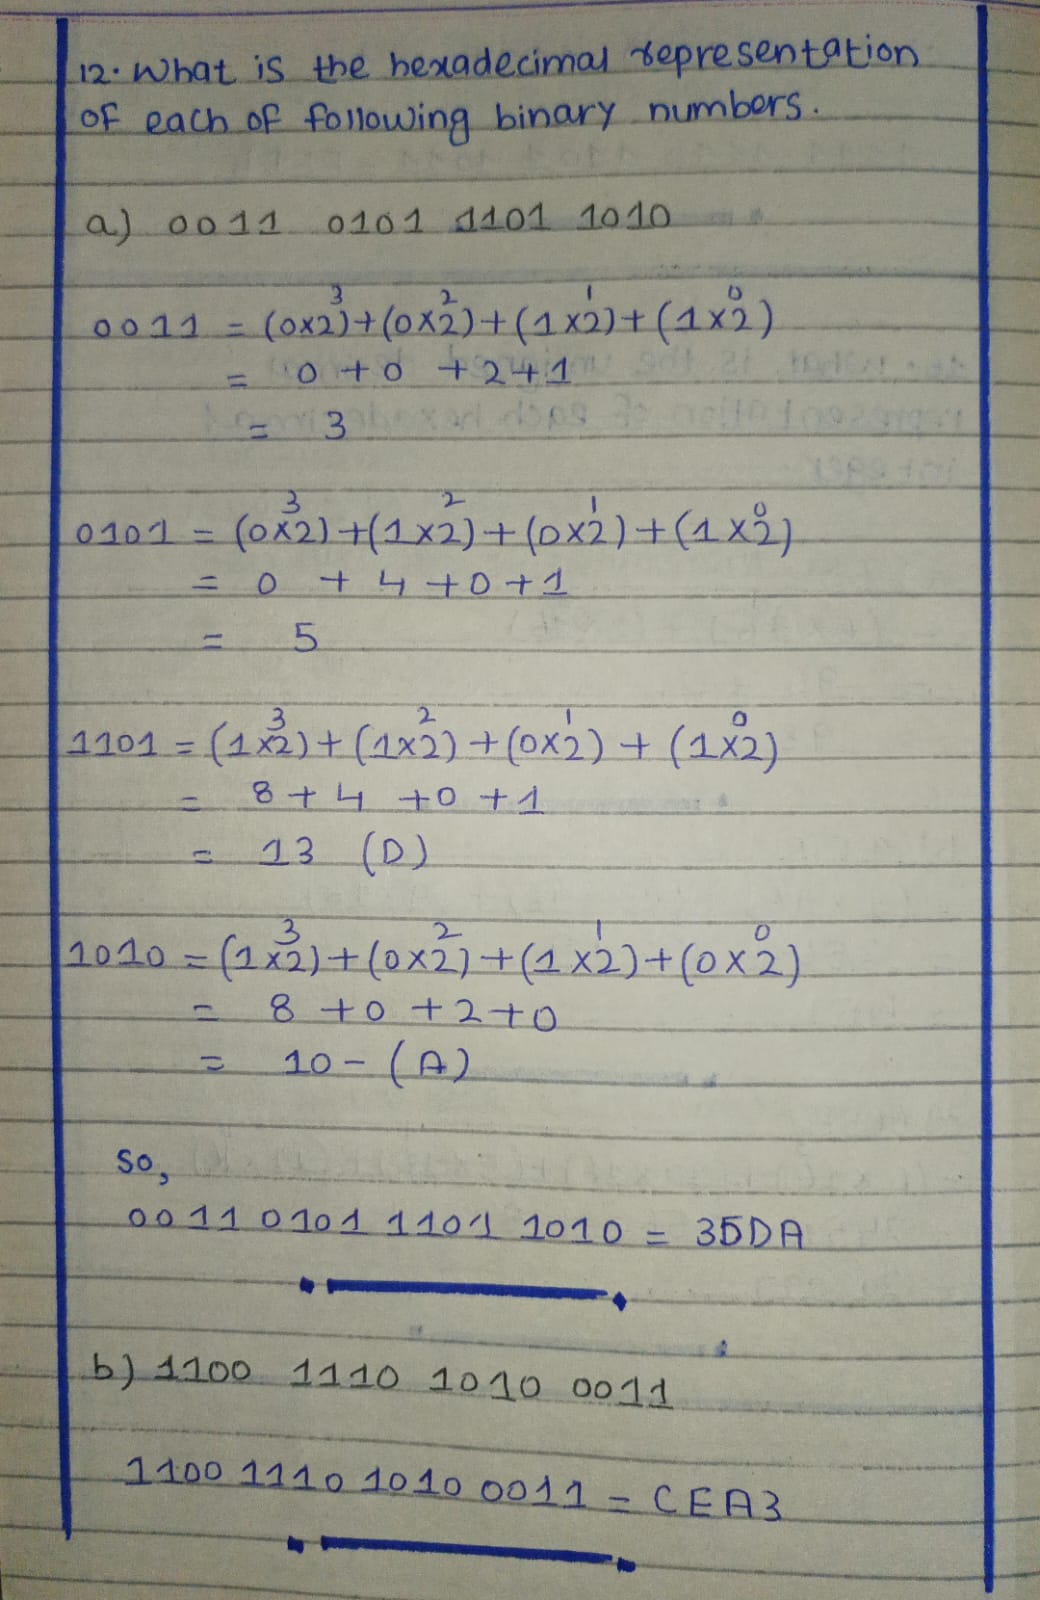 12. What is the hexadecimal representation
of each of following binary numbers.
a) 0011 0101 1101 1010
0011 = (0x2³)+(0x2²)+(1x2¹)+(1x2⁰)
= 0+0+2+1
= 3
0101 = (0x2³)+(1x2²)+(0x2¹)+(1x2⁰)
= 0+4+0+1
= 5
1101 = (1x2³)+(1x2²)+(0x2¹)+(1x2⁰)
= 8+4+0+1
= 13 (D)
1010 = (1x2³)+(0x2²)+(1x2¹)+(0x2⁰)
= 8+0+2+0
= 10-(A)
So,
0011 0101 1101 1010 = 35DA
b) 1100 1110 1010 0011
1100 1110 1010 0011 = CEA3